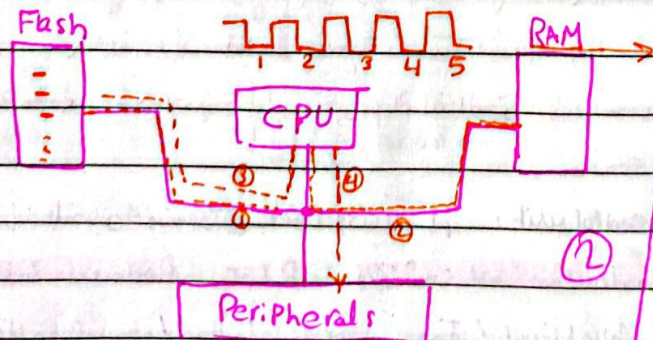 Flash
RAM
1 2 3 4 5
CPU
③
④
①
②
②
Peripherals